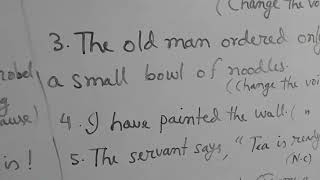 (Change the voi
3. The old man ordered only
a small bowl of noodles.
(Change the voi
4. I have painted the wall. ( "
5. The servant says, " Tea is ready
(N.c)
nobel
ng
ause)
is !